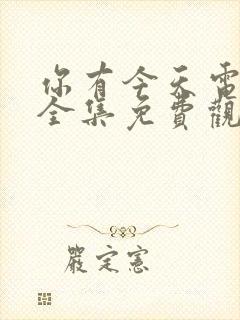 你有今天電
全集免費觀
嚴定憲